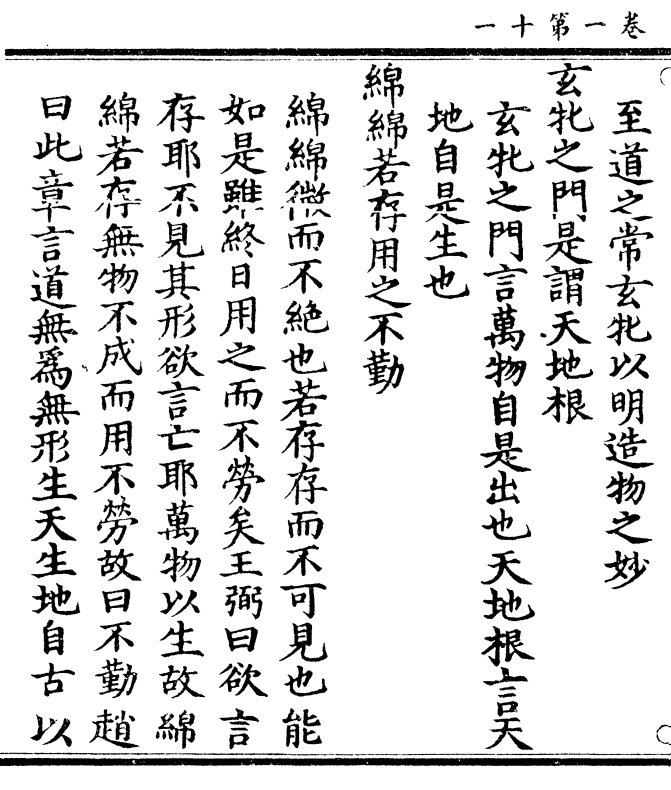 卷一第十一
至道之常玄牝以明造物之妙
玄牝之門是謂天地根
玄牝之門言萬物自是出也天地根言天
地自是生也
綿綿若存用之不勤
綿綿微而不絶也若存存而不可見也能
如是雖終日用之而不勞矣王弼曰欲言
存耶不見其形欲言亡耶萬物以生故綿
綿若存無物不成而用不勞故曰不勤趙
曰此章言道無爲無形生天生地自古以